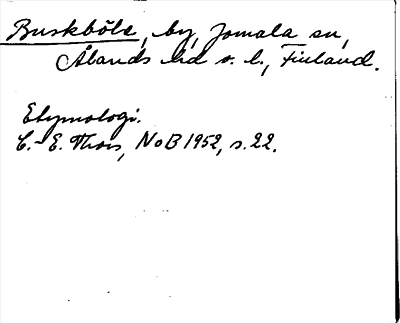 Buskböle, by, Jomala sn,
Ålands hd o. l., Finland.
Etymologi.
C.-E. Thors, NoB 1952, s. 22.